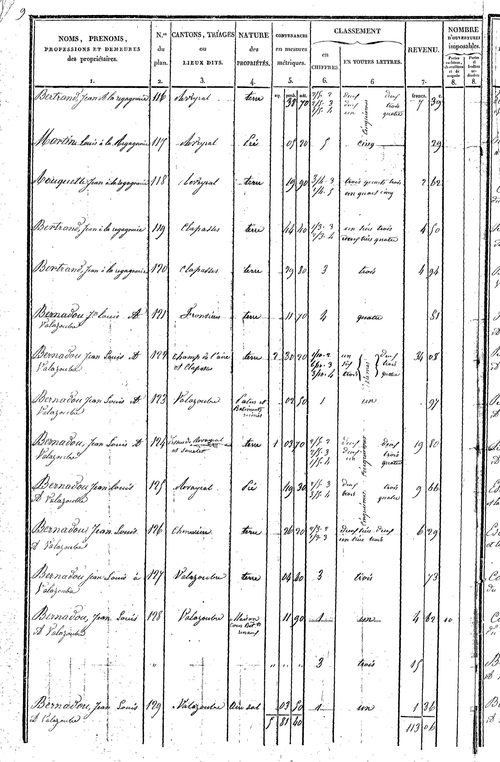 9
NOMS, PRENOMS, PROFESSIONS ET DEMEURES des propriétaires. N.os du plan. CANTONS, TRIAGES ou LIEUX DITS. NATURE des PROPRIÉTÉS. CONTENANCES en mesures métriques. CLASSEMENT en CHIFFRES. EN TOUTES LETTRES. REVENU. NOMBRE D'OUVERTURES imposables.
1. 2. 3. 4. 5. 6. 6 7. 8. 8.
Bertrand, Jean à la regagnerie 116 terre 38 70 2/5. 2 2/5. 3 1/5. 4 deux deux trois quatre cinquièmes 7 39
Martin Louis à la Regagnerie 117 Pré 05 20 5 cinq 29
Jean à la regagnerie 118 terre 19 90 3/4. 3 1/4. 5 trois quarts trois un quart cinq 2 62
Bertrand, Jean à la regagnerie 119 Clapasses terre 44 40 1/3. 3 2/3. 4 un tiers trois deux tiers quatre 4 50
Bertrand, Jean à la regagnerie 120 Clapasses terre 29 80 3 trois 4 94
Bernadou, Jn Louis A Valazoubre 121 terre 11 70 4 quatre 81
Bernadou, Jean Louis A Valazoubre 122 Champ de l'aire et Clapasse terre 2 30 20 1/10. 2 6/10. 3 3/10. 4 un six trois dixièmes deux trois quatre 34 08
Bernadou Jean Louis A Valazoubre 123 Valazoubre Patus et Batiments ruinés 02 50 1 un 97
Bernadou, Jean Louis A Valazoubre 124 terre 1 03 70 2/5. 2 2/5. 3 1/5. 4 deux deux un cinquièmes deux trois quatre 19 80
Bernadou Jean Louis A Valazoubre 125 Pré 49 30 2/5. 3 3/5. 4 deux trois cinquièmes trois quatre 9 66
Bernadou Jean Louis A Valazoubre 126 terre 26 20 2/3. 2 1/3. 3 deux tiers deux un tiers trois 6 29
Bernadou Jean Louis à Valazoubre 127 Valazoubre terre 04 40 3 trois 73
Bernadou, Jean Louis A Valazoubre 128 Valazoubre Maison 11 90 1 un 4 62 10
" " " " 3 trois 15
Bernadou, Jean Louis A Valazoubre 129 Valazoubre Aire sol 03 50 1 un 1 36
5 81 40 113 06